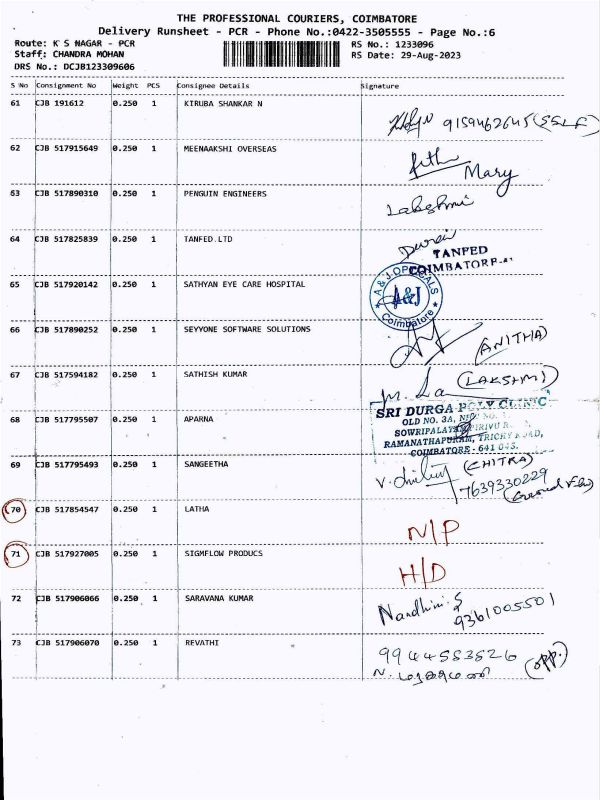 THE PROFESSIONAL COURIERS, COIMBATORE
Delivery Runsheet - PCR - Phone No.:0422-3505555 - Page No.:6
Route: K S NAGAR - PCR RS No.: 1233096
Staff: CHANDRA MOHAN RS Date: 29-Aug-2023
DRS No.: DCJB123309606
S No Consignment No Weight PCS Consignee Details Signature
61 CJB 191612 0.250 1 KIRUBA SHANKAR N
9159462645 (SELF)
62 CJB 517915649 0.250 1 MEENAAKSHI OVERSEAS
Mary
63 CJB 517890310 0.250 1 PENGUIN ENGINEERS
Lakshmi
64 CJB 517825839 0.250 1 TANFED.LTD
Durai
TANFED
COIMBATORE-41
65 CJB 517920142 0.250 1 SATHYAN EYE CARE HOSPITAL
A & J OPTICALS
A&J
Coimbatore
66 CJB 517890252 0.250 1 SEYYONE SOFTWARE SOLUTIONS
(ANITHA)
67 CJB 517594182 0.250 1 SATHISH KUMAR
(LAKSHMI)
68 CJB 517795507 0.250 1 APARNA
SRI DURGA POLY CLINIC
OLD NO. 3A,
SOWRIPALAYAM PIRIVU
RAMANATHAPURAM, TRICHY ROAD,
COIMBATORE - 641 045.
69 CJB 517795493 0.250 1 SANGEETHA
(CHITRA)
7639330229
70 CJB 517854547 0.250 1 LATHA
N/P
71 CJB 517927005 0.250 1 SIGMFLOW PRODUCS
H/D
72 CJB 517906066 0.250 1 SARAVANA KUMAR
Nandhini.S
9361005501
73 CJB 517906070 0.250 1 REVATHI
9944553526
(opp.)